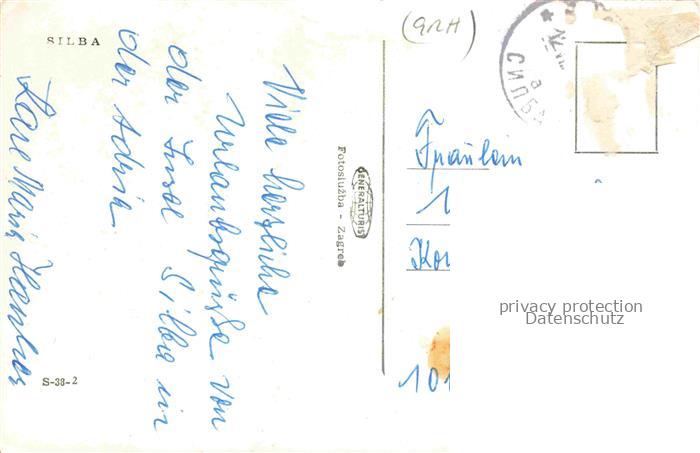 SILBA
Viele herzliche
Urlaubsgrüße von
der Insel Silba in
der Adria.
S-38-2
GENERALTURIST
Fotoslužba - Zagreb
(9RH)
СИЛБА
а
Fräulein
1
Kor
101
privacy protection
Datenschutz